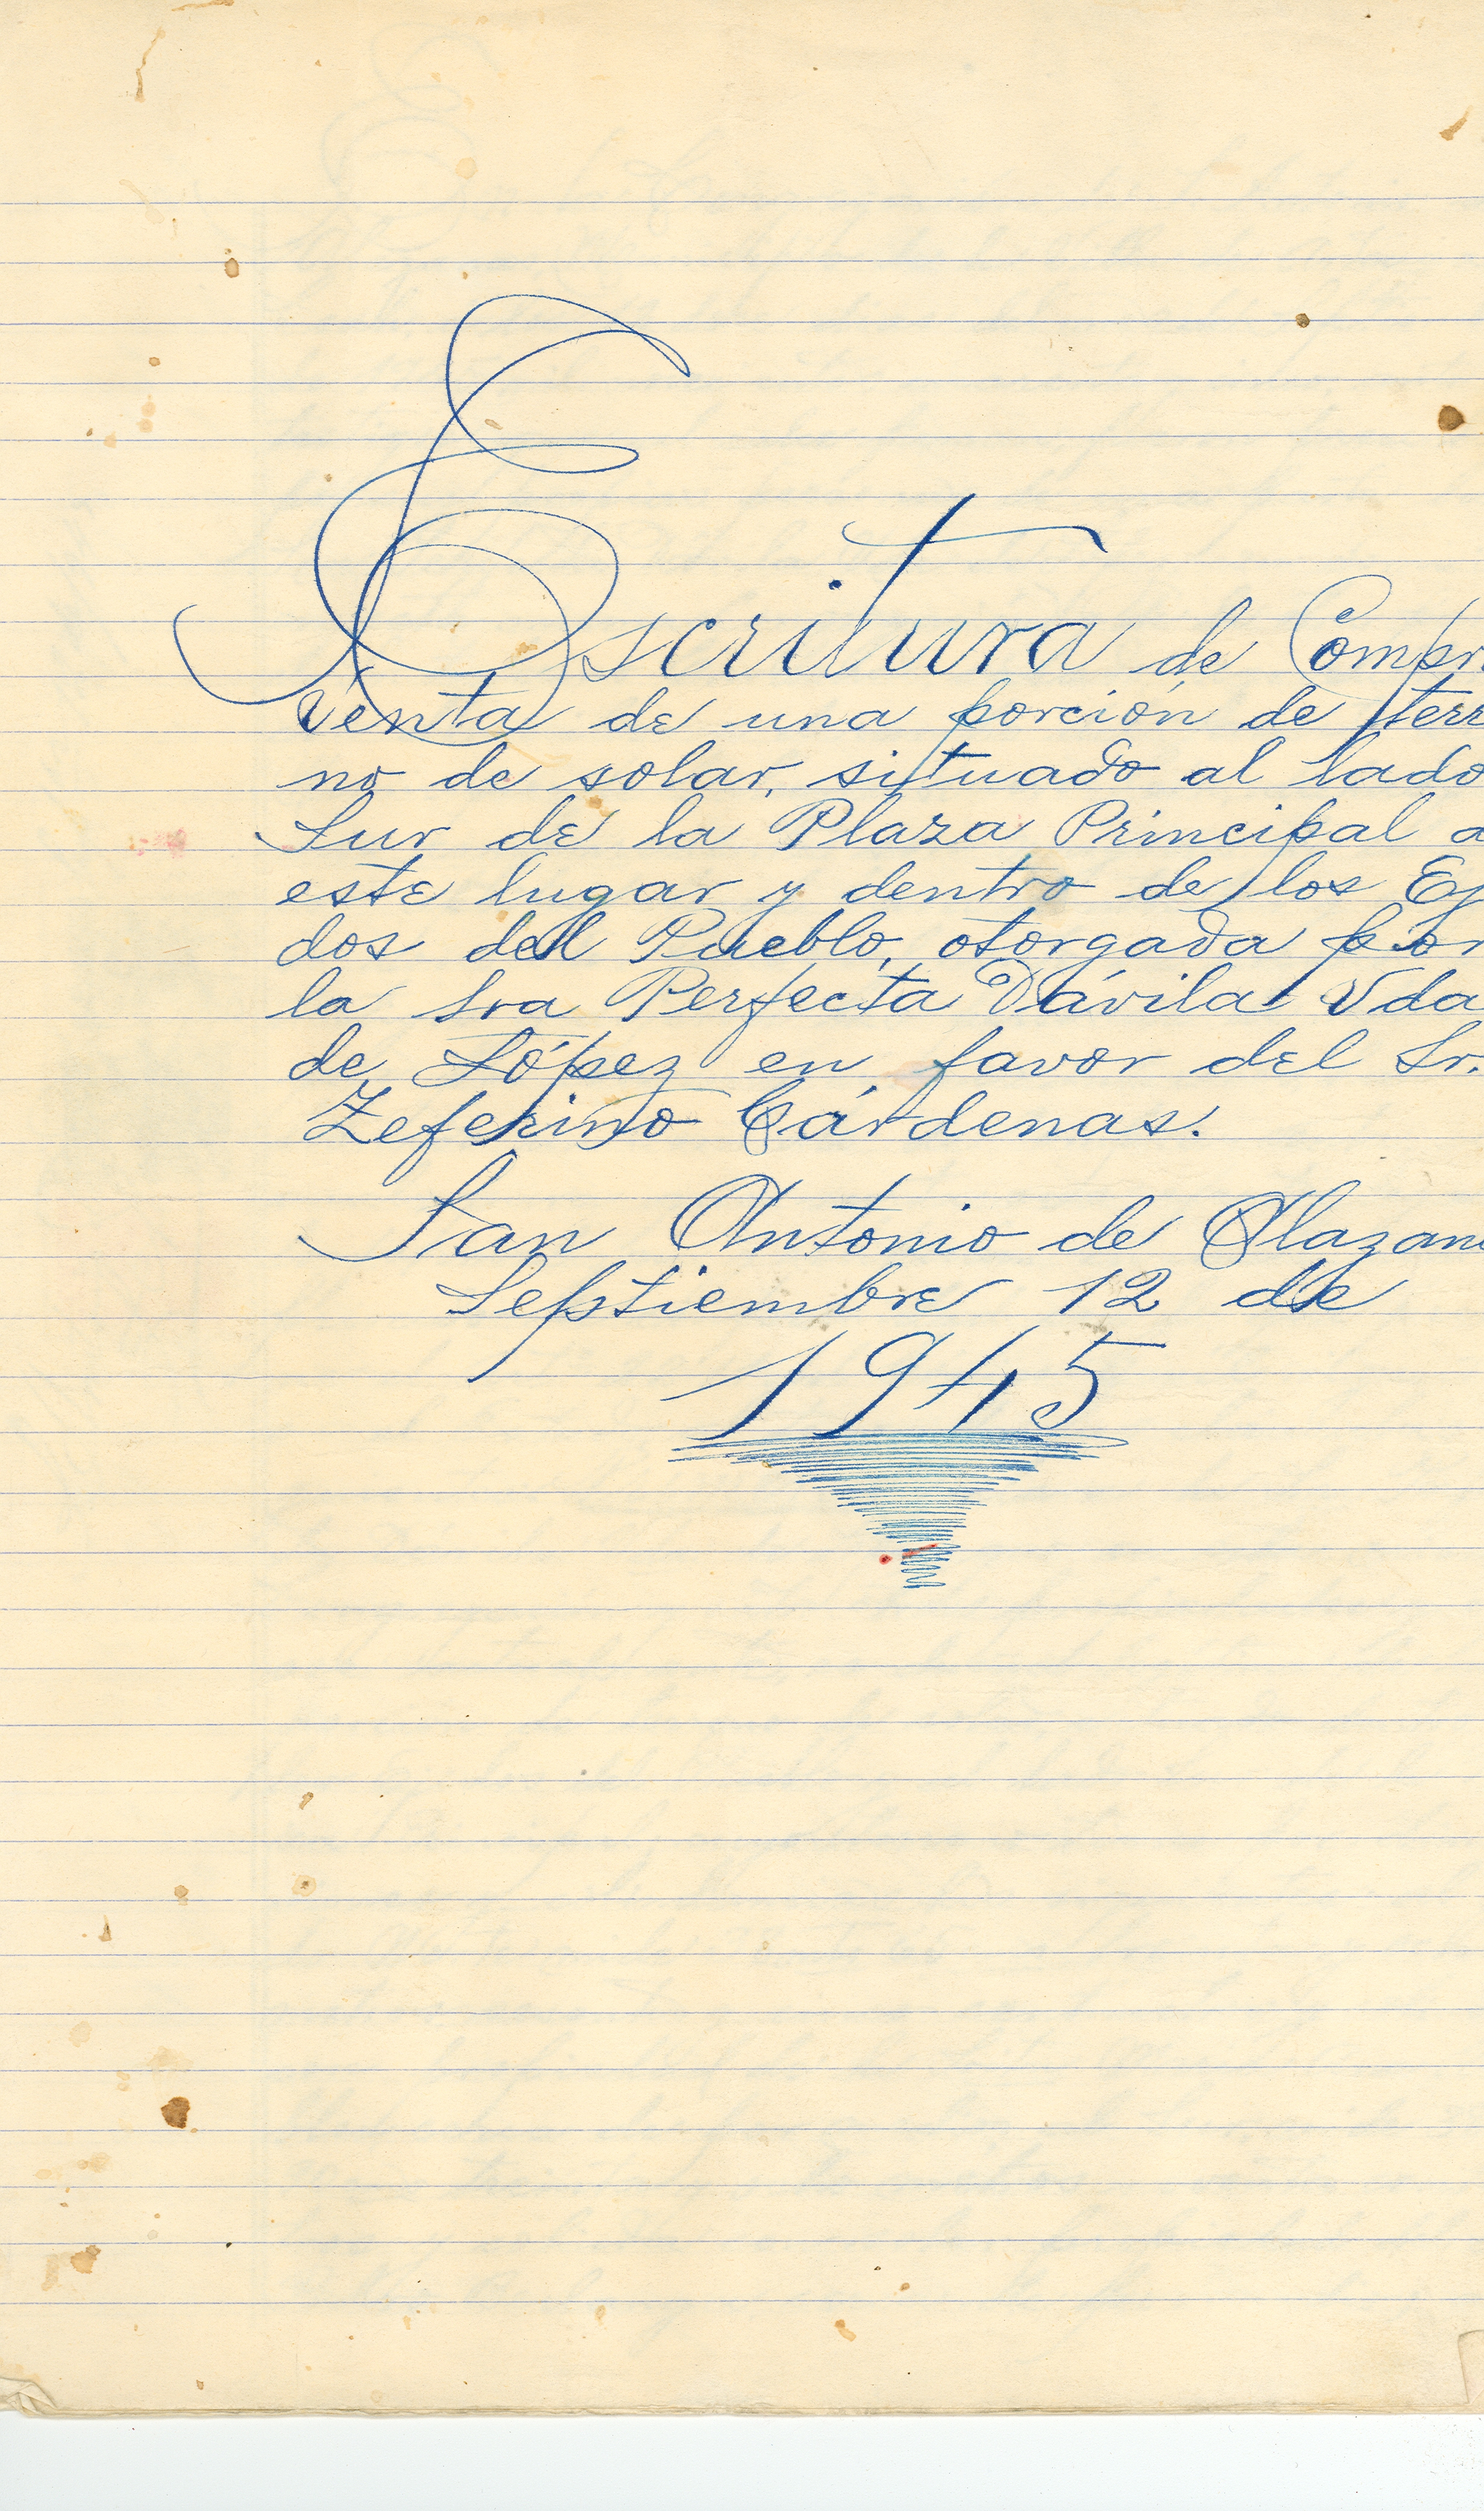 Escritura de Compr
venta de una porción de terr
no de solar, situado al lado
Sur de la Plaza Principal a
este lugar y dentro de los Ej
dos del Pueblo, otorgada por
la Sra Perfecta Dávila Vda
de López en favor del Sr.
Zeferino Cárdenas.
San Antonio de Alazan
Septiembre 12 de
1945